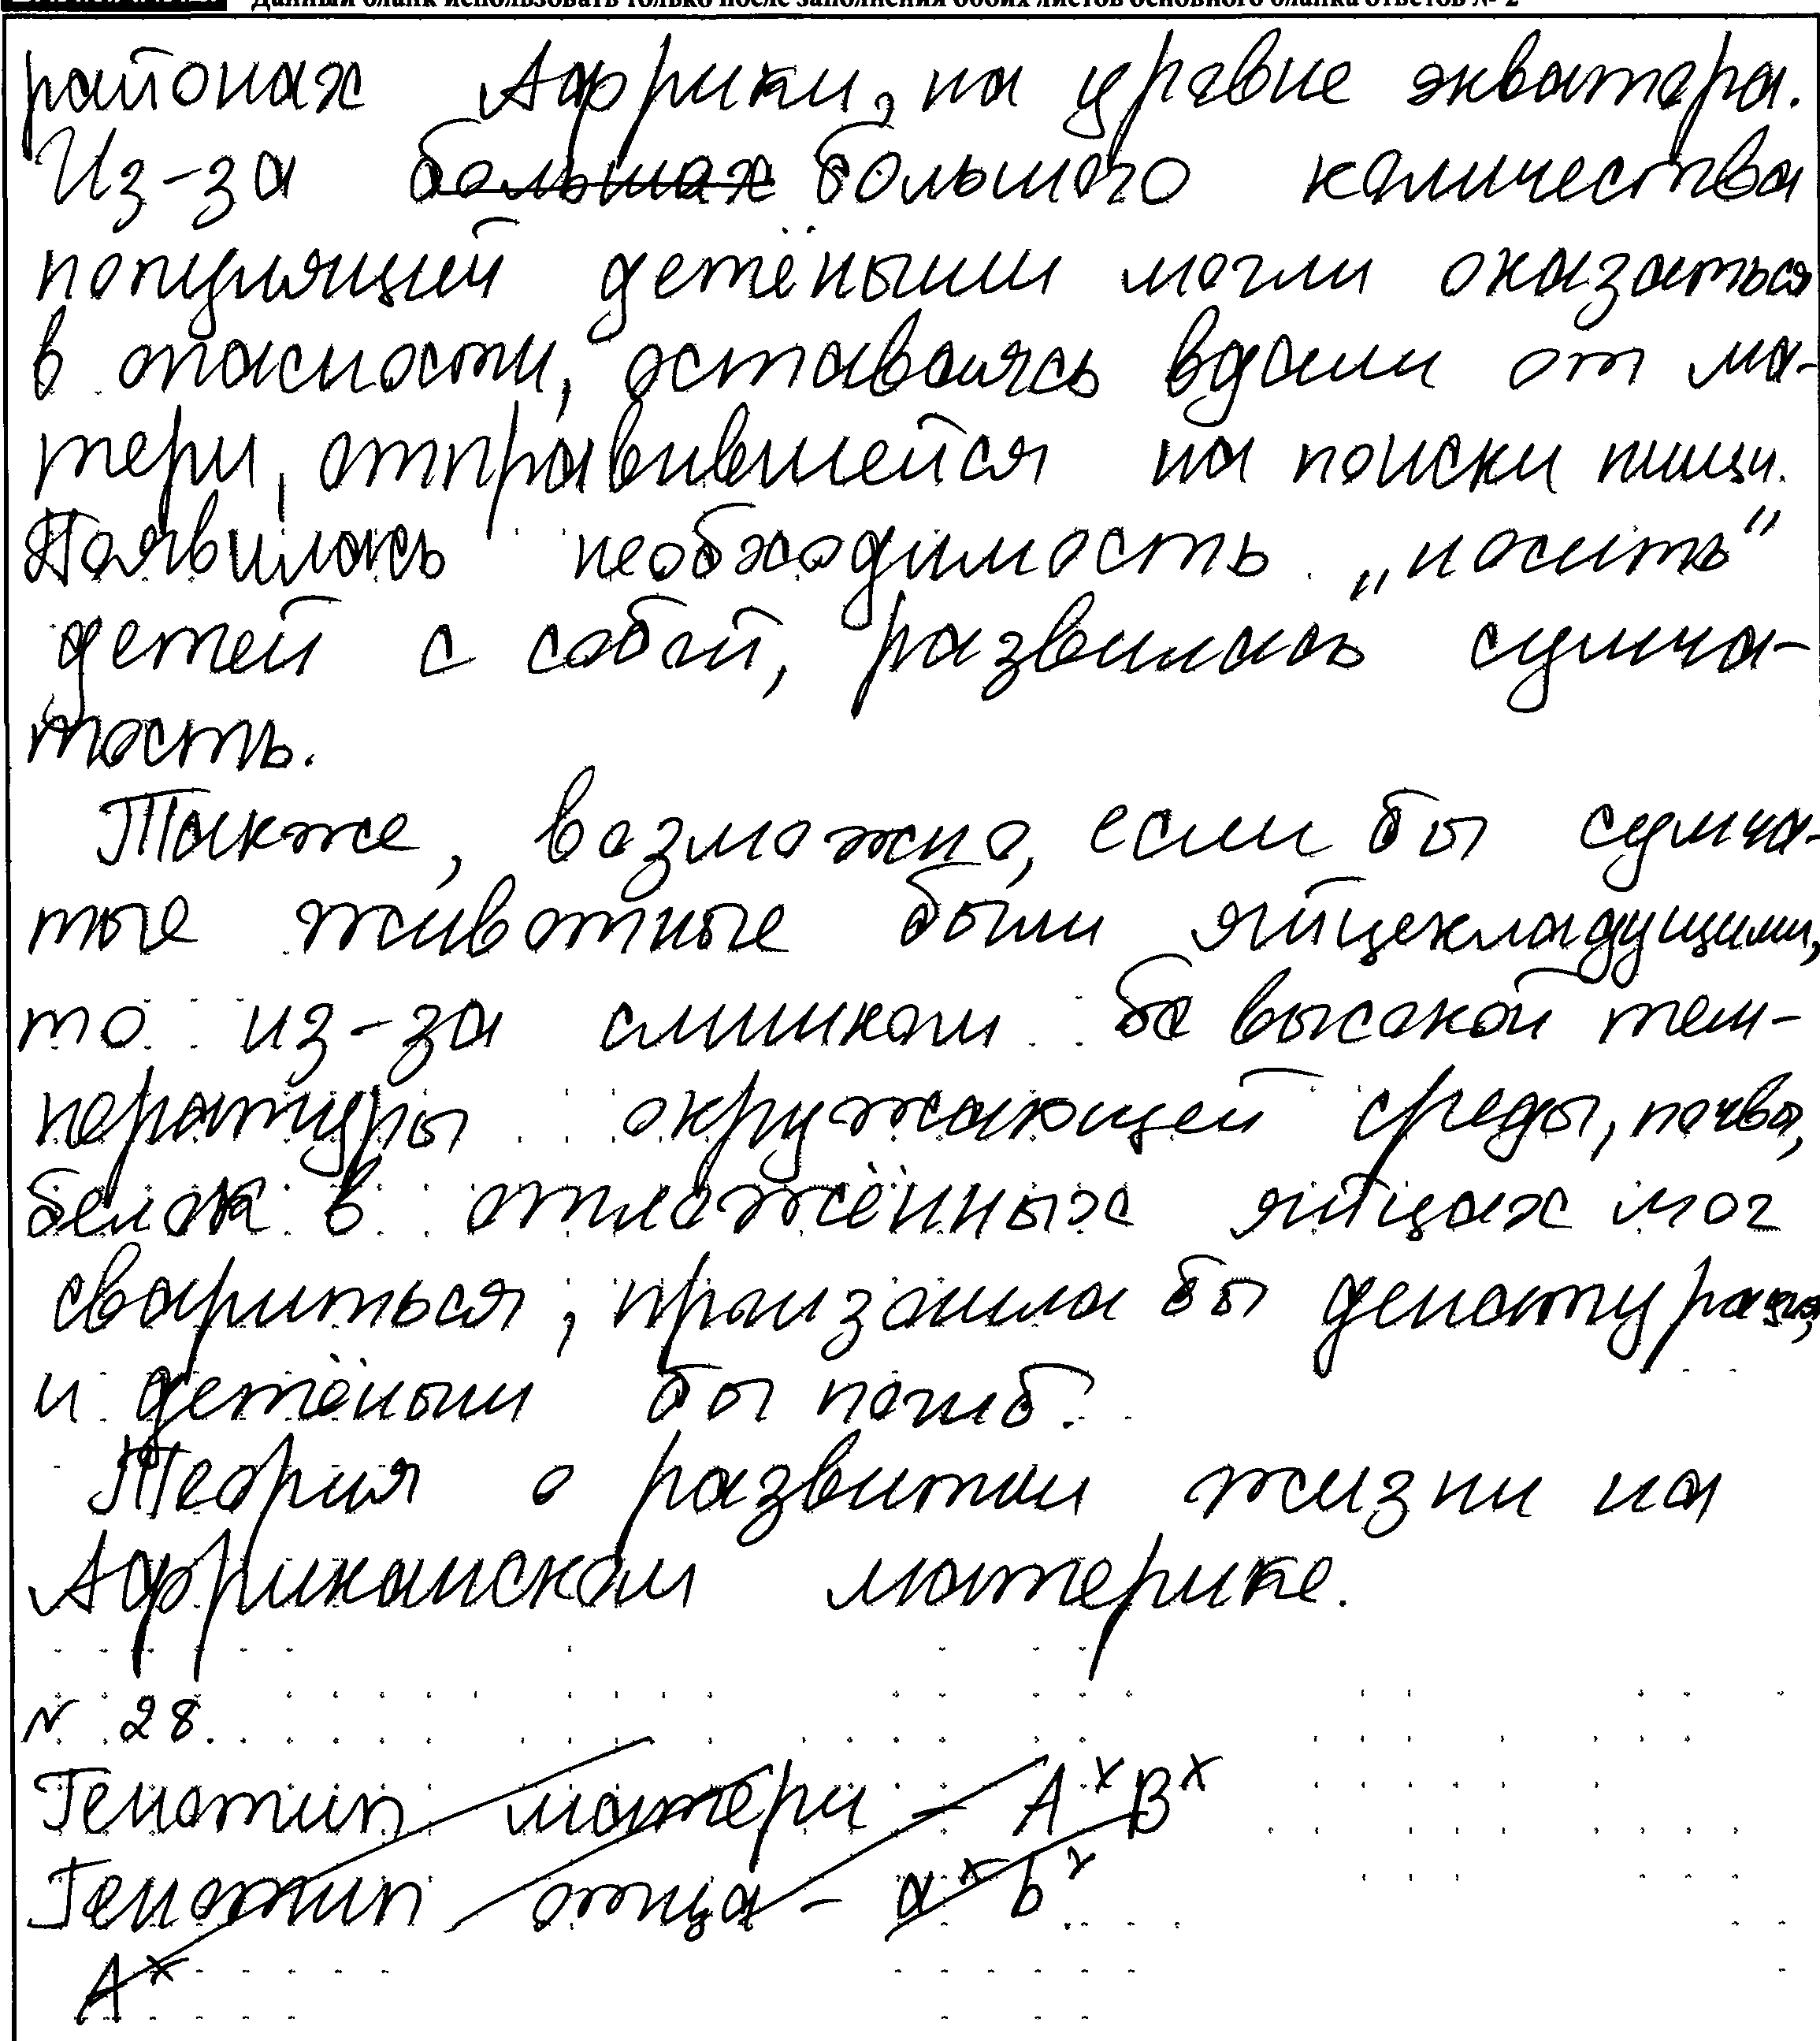 Данный бланк использовать только после заполнения обоих листов основного бланка ответов № 2
районах Африки, на уровне экватора.
Из-за больших большого количества
популяций детёныши могли оказаться
в опасности, оставаясь вдали от ма-
тери, отправившейся на поиски пищи.
Появилась необходимость „носить"
детей с собой, развилась сумча-
тость.
Также, возможно, если бы сумча-
тые животные были яйцекладущими,
то из-за слишком бо высокой тем-
пературы окружающей среды, почвы,
белок в отложенных яйцах мог
свариться, произошла бы денатурация,
и детёныш бы погиб.
Теория о развитии жизни на
Африканском материке.
N 28.
Генотип матери – AˣBˣ
Генотип отца – aˣbˣ
Aˣ